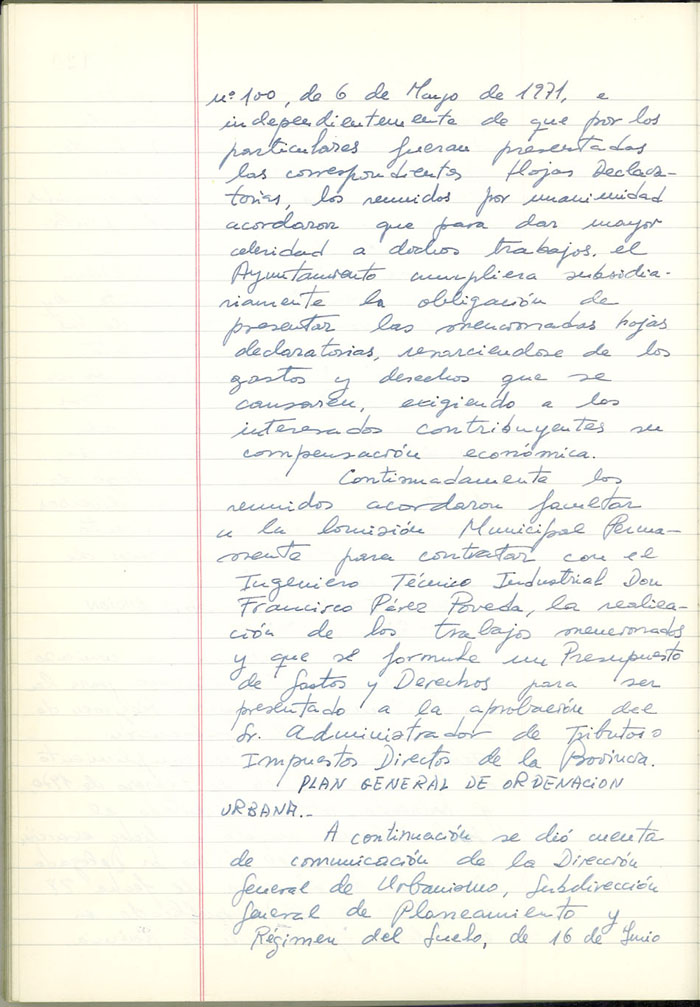 nº 100, de 6 de Mayo de 1971, e
independientemente de que por los
particulares fueran presentadas
las correspondientes Hojas Declara-
torias, los reunidos por unanimidad
acordaron que para dar mayor
celeridad a dichos trabajos, el
Ayuntamiento cumpliera subsidia-
riamente la obligación de
presentar las mencionadas hojas
declaratorias, resarciendose de los
gastos y derechos que se
causaren, exigiendo a los
interesados contribuyentes su
compensación económica.
Continuadamente los
reunidos acordaron facultar
a la Comisión Municipal Perma-
nente para contratar con el
Ingeniero Técnico Industrial Don
Francisco Pérez Poveda, la realiza-
ción de los trabajos mencionados
y que se formule un Presupuesto
de Gastos y Derechos para ser
presentado a la aprobación del
Sr. Administrador de Tributos e
Impuestos Directos de la Provincia.
PLAN GENERAL DE ORDENACION
URBANA.-
A continuación se dió cuenta
de comunicación de la Dirección
General de Urbanismo, Subdirección
General de Planeamiento y
Régimen del Suelo, de 16 de Junio